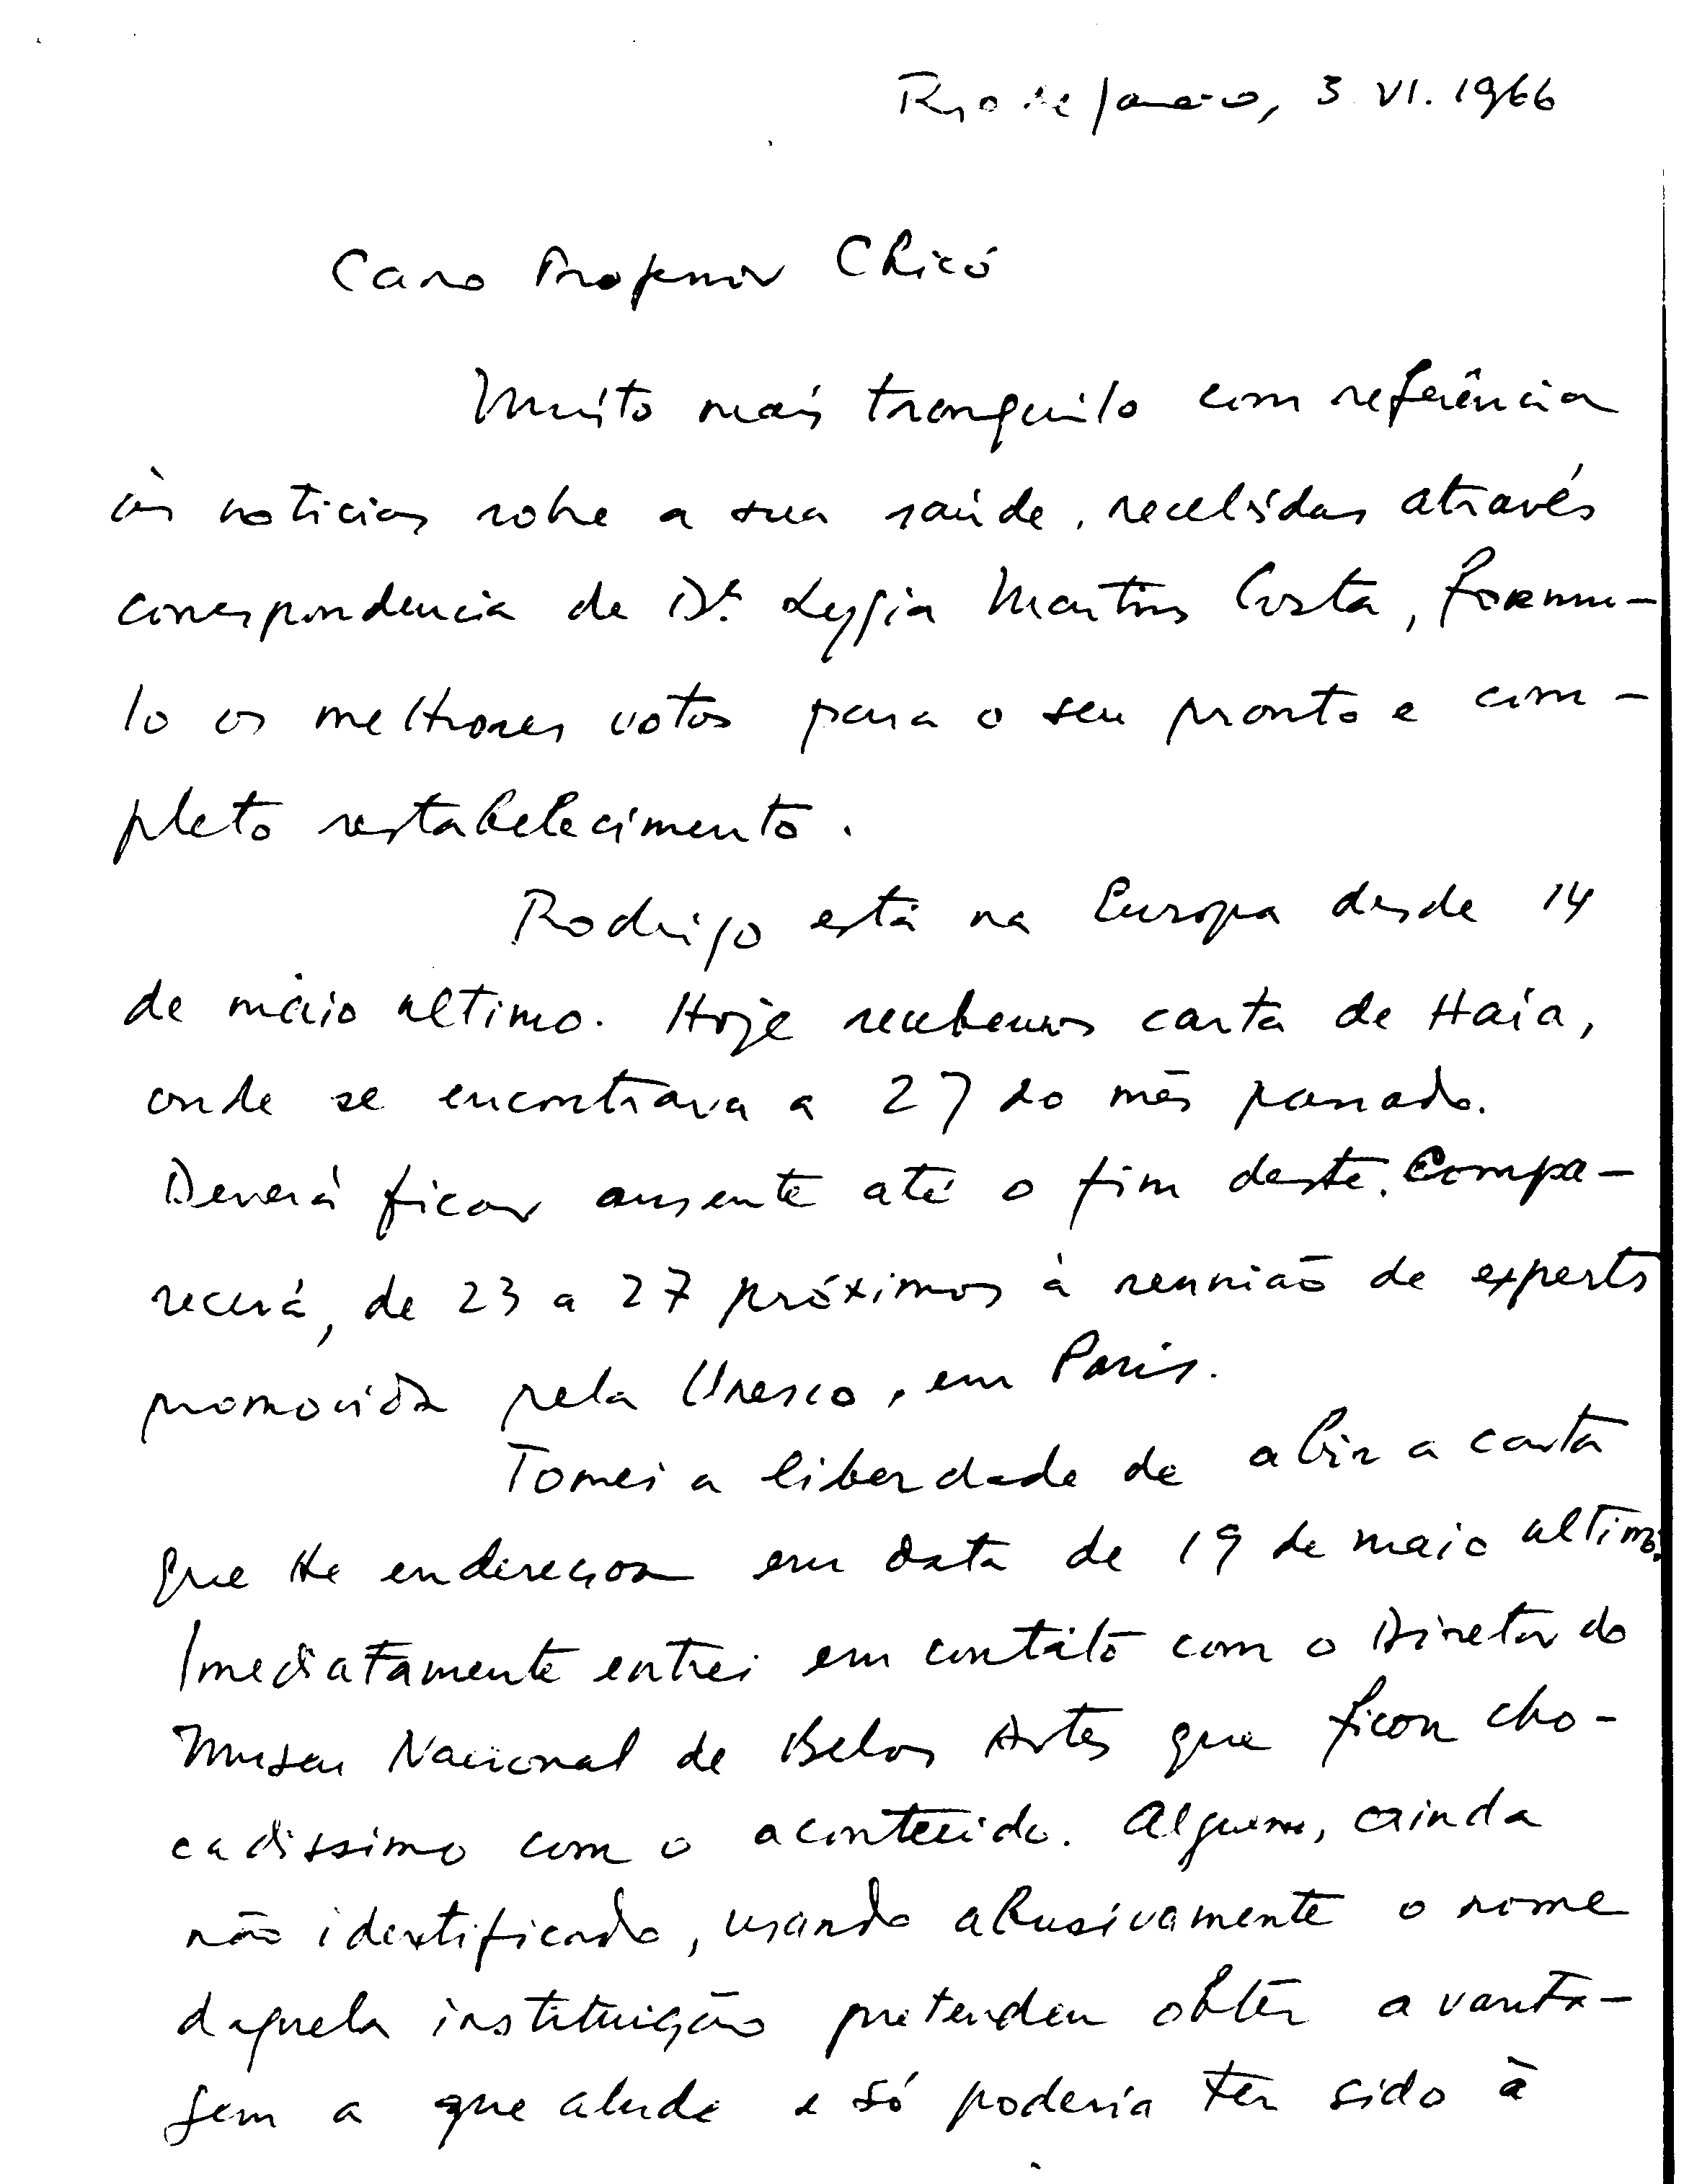 Rio de Janeiro, 3 VI. 1966
Caro Professor Chicó
Muito mais tranquilo com referência
às noticias sobre a sua saúde, recebidas através
correspondencia de Dª. Lygia Martins Costa, formu-
lo os melhores votos para o seu pronto e com-
pleto restabelecimento.
Rodrigo está na Europa desde 14
de maio ultimo. Hoje recebemos carta de Haia,
onde se encontrava a 27 do mês passado.
Deverá ficar ausente até o fim deste. Compa-
recerá, de 23 a 27 próximos à reunião de experts
promovida pela Unesco, em Paris.
Tomei a liberdade de abrir a carta
que lhe endereçou em data de 19 de maio ultimo.
Imediatamente entrei em contáto com o Diretor do
Museu Nacional de Belas Artes que ficou cho-
cadissimo com o acontecido. Alguem, ainda
não identificado, usando abusivamente o nome
daquela instituição pretendeu obter a vanta-
gem a que alude e só poderia ter sido à